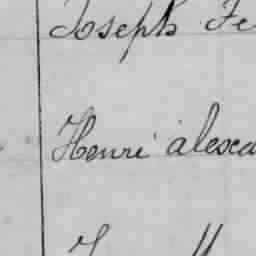 Joseph Fe
Henri alexa